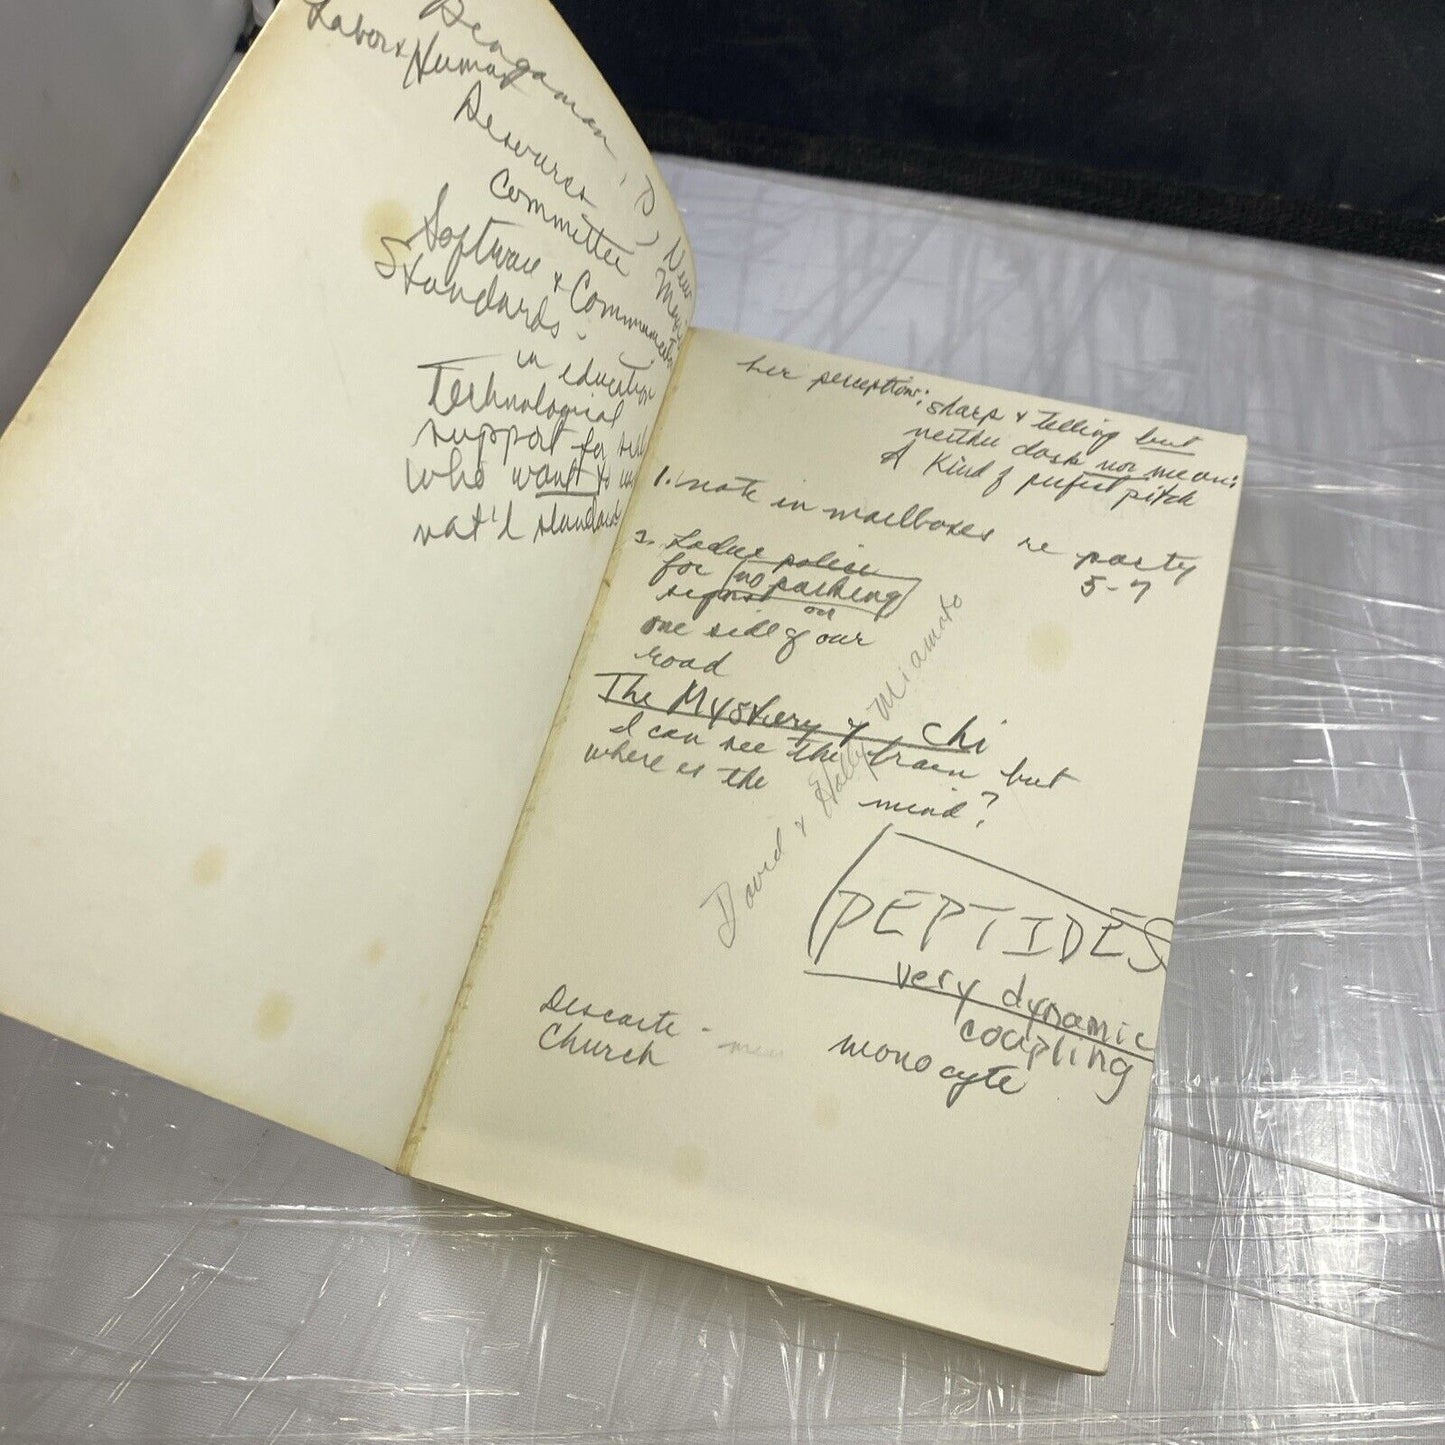 Bengaman, D, New
Labor & Human
Resources
Committee
Software & Communication
Standards -
in education
Technological
support for
who want to
nat'l standard
her perception: sharp & telling but
neither dark nor mean:
A Kind of perfect pitch
1. note in mailboxes re party
5-7
2. Ladue police
for no parking
signs on
one side of our
road
The Mystery of Chi
I can see the brain but
where is the mind?
David & Holly Miamoto
PEPTIDES
very dynamic
coupling
monocyte
Descarte -
Church